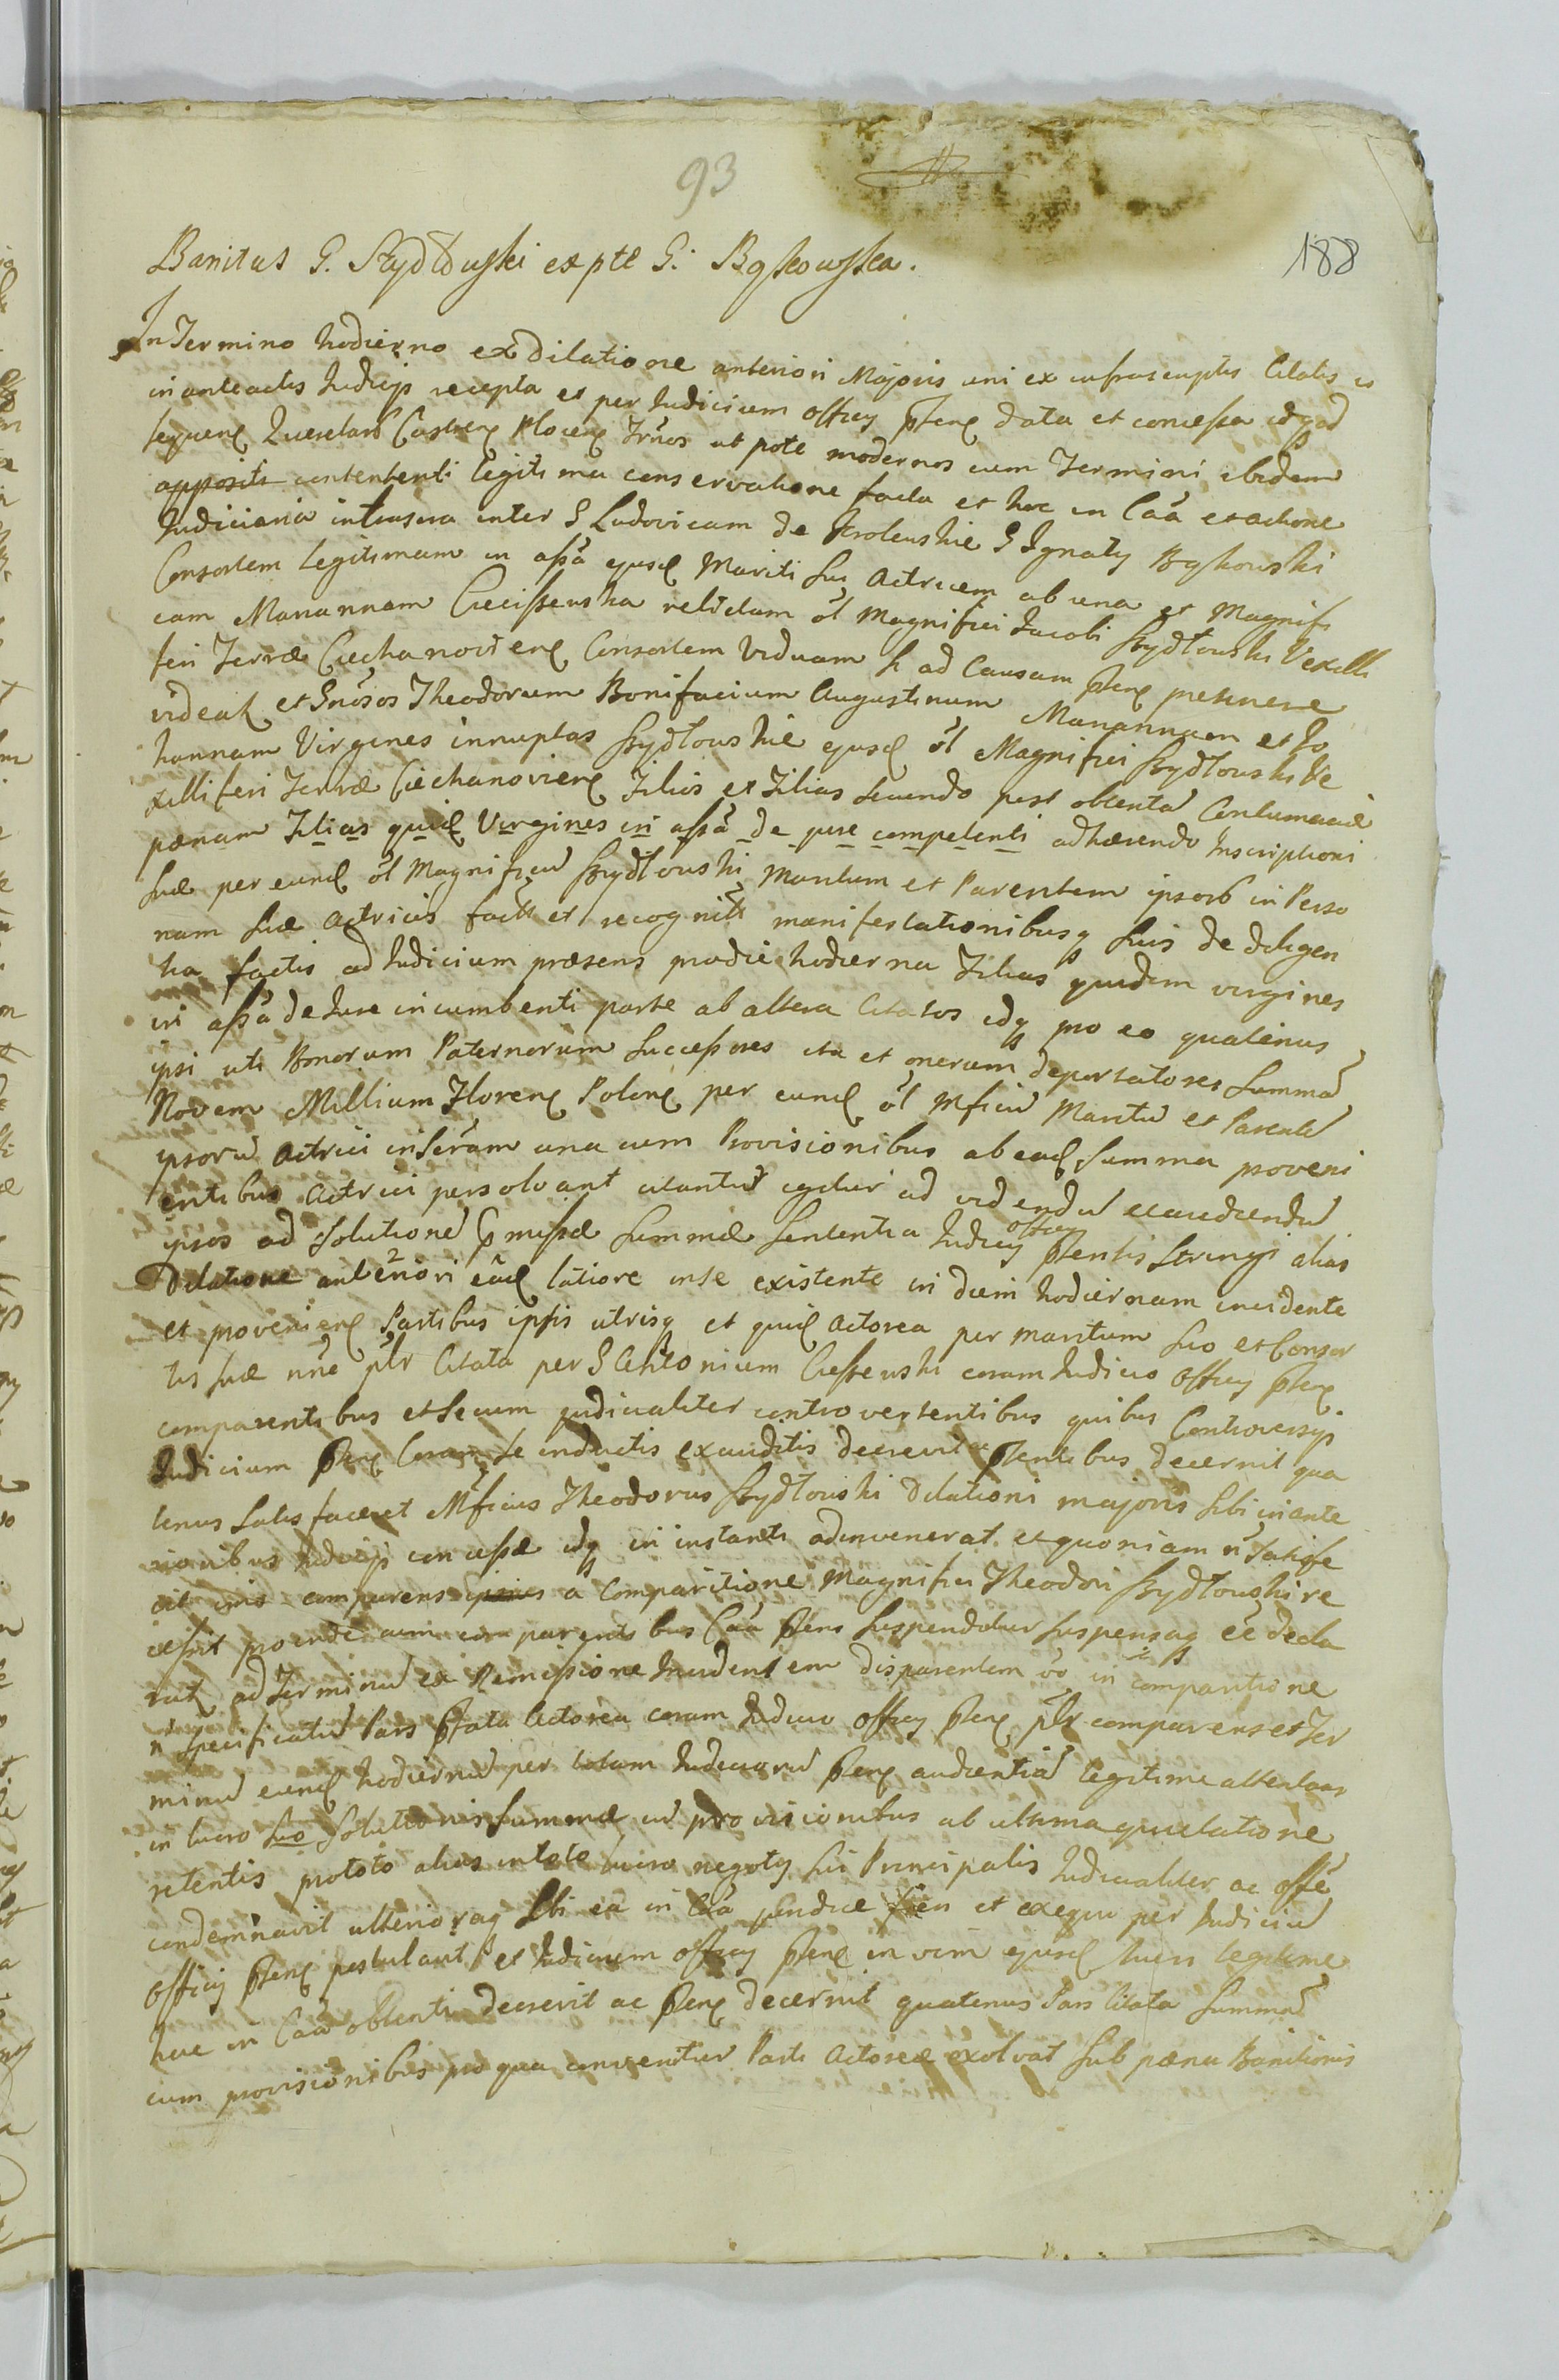 93
188
Banitus G. Szydłowski ex pte G. Bąkowska.
In Termino hodierno ex Dilatione anteriori Majoris uni ex infrascriptis Citatis in
in anteactis Judicijs recepta et per Judicium Officij pñens data et concessa idq ad
sequens Querelar Castren Plocen Trnos ut pote modernos cum Termini ibidem
appositi contententi legitima conservatione facta et hoc in Caã et actione
Judiciaria infrascra inter G Ludovicam de Krolewskie G Ignatij Bąkowski
Consortem legitimam in assã ejusd Mariti sui Actricem ab una et Magnifi
cam Mariannam Ciecissewska relictam ol Magnifici Jacobi Szydłowski Vexilli
feri Terræ Ciechanovien Consortem Viduam si ad Causam pñens pertinere
videat et Gñosos Theodorum Bonifacium Augustinum Mariannam et Jo
hannam Virgines innuptas Szydłowskie ejusd ol Magnifici Szydłowski Ve
xilliferi Terræ Ciechanovien Filios et Filias secundo post obtentã Contumaciæ
pænam Filias quid Virgines in assã de jure competenti adhærendo Inscriptioni
suæ per eund ol Magnificũ Szydłowski Maritum et Parentem ipsorũ in Perso
nam suæ Actricis factæ et recognitæ manifestationibusq suis de diligen
tia factis ad Judicium præsens pro die hodierna Filias quidem virgines
in assã de Jure incumbenti parte ab altera Citatos idq pro eo quatenus
ipsi uti Bonorum Paternorum Successores ita et onerum deportatores Summã
Novem Millium Floren Polon per eund ol Mficũ Maritũ et Parentẽ
ipsorũ Actrici inscram una cum Provisionibus ab ead Summa proveni
entibus Actrici persolvant citantur igitur ad videndũ et audiendũ
ipsos ad Solutionẽ pmissæ Summæ Sententia Judicij officij pñentis stringi alias
Dilatione anteriori ead latiore in se existente in diem hodiernam incidente
et provenien Partibus ipsis utrisq et quid Actorea per Maritum suo et Consor
tis suæ nñe plr Citata per G Antonium Ciessewski coram Judicio Officij pñens
comparentibus et secum judicialiter controvertentibus quibus Controversijs
Judicium pñens Coram se inductis exauditis decrevit ac pñentibus decernit qua
tenus satisfaceret Mficus Theodorus Szydłowski Dilationi majoris sibi in ante
rioribus Judicijs concessæ idq in instanti adinvenerat. et quoniam ñ satisfe
cit imo comparens ipsius a Comparitione Magnifici Theodori Szydłowski re
cessit proinde cum comparentibus Caã pñens suspenditur suspensaq eẽ decla
rat ad Terminũ ex Remissione Incidentem disparentem vo in comparitione
ñ specificatũ Pars pfata Actorea coram Judicio officij pñens plr comparens et Ter
minũ eund hodiernũ per totam Judiciorũ pñens audientiã legitime attentans
in lucro suo Solutionis Summæ cũ provisionibus ab ultima quietatione
retentis pro toto alias in toto lucro negotij sui Principalis Judicialiter ac offẽ
condemnavit ulterioraq sibi eã in Caã perdicẽ fieri et exequi per Judiciũ
officij pñens postulavit et Judicium officij pñens in vim ejusd lucri legitime
hac in Caã obtenti decrevit ac pñens decernit quatenus Pars Citata Summã
cum provisionibus pro qua convenitur Parti Actoreæ exolvat sub pæna Banitionis